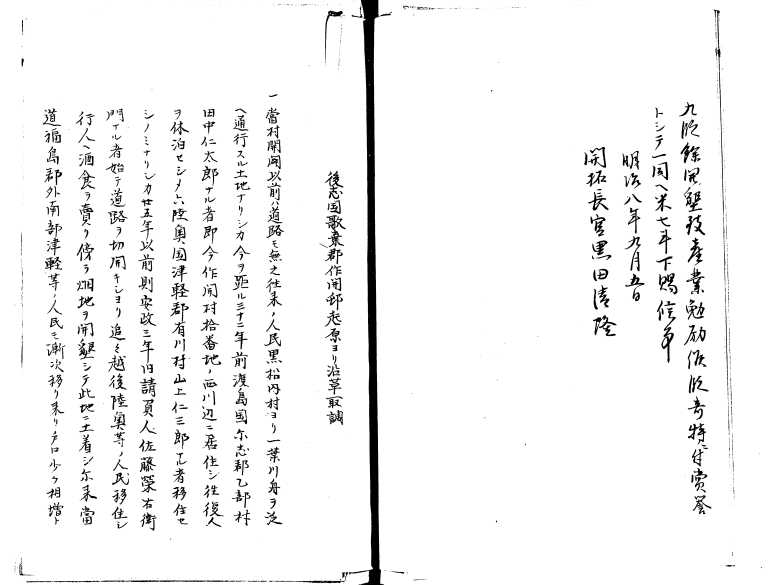 九段餘開墾致産業勉励候段奇特ニ付賞誉
トシテ一同ヘ米七斗下賜候事
明治八年九月五日
開拓長官黒田清隆
後志国歌棄郡作開邨起原ヨリ沿革取調
一 當村開闢以前ハ道路モ無之往来ノ人民黒松内村ヨリ一葉川舟ヲ泛
ヘ通行スル土地ナリシカ今ヲ距ル三十二年前渡島国尓志郡乙部村
田中仁太郎ナル者即今作開村拾番地ノ西川辺ニ居住シ往復人
ヲ休泊セシメ陸奥国津軽郡有川村山上仁三郎ナル者移住セ
シノミナリシカ廿五年以前則安政三年旧請負人佐藤榮右衛
門ナル者始テ道路ヲ切開キシヨリ追々越後陸奥等ノ人民移住シ
行人ヘ酒食ヲ賣リ傍ラ畑地ヲ開墾シテ此地ニ土着シ尓来當
道福島郡外南部津軽等ノ人民モ漸次移リ来リ戸口少ク相増ト